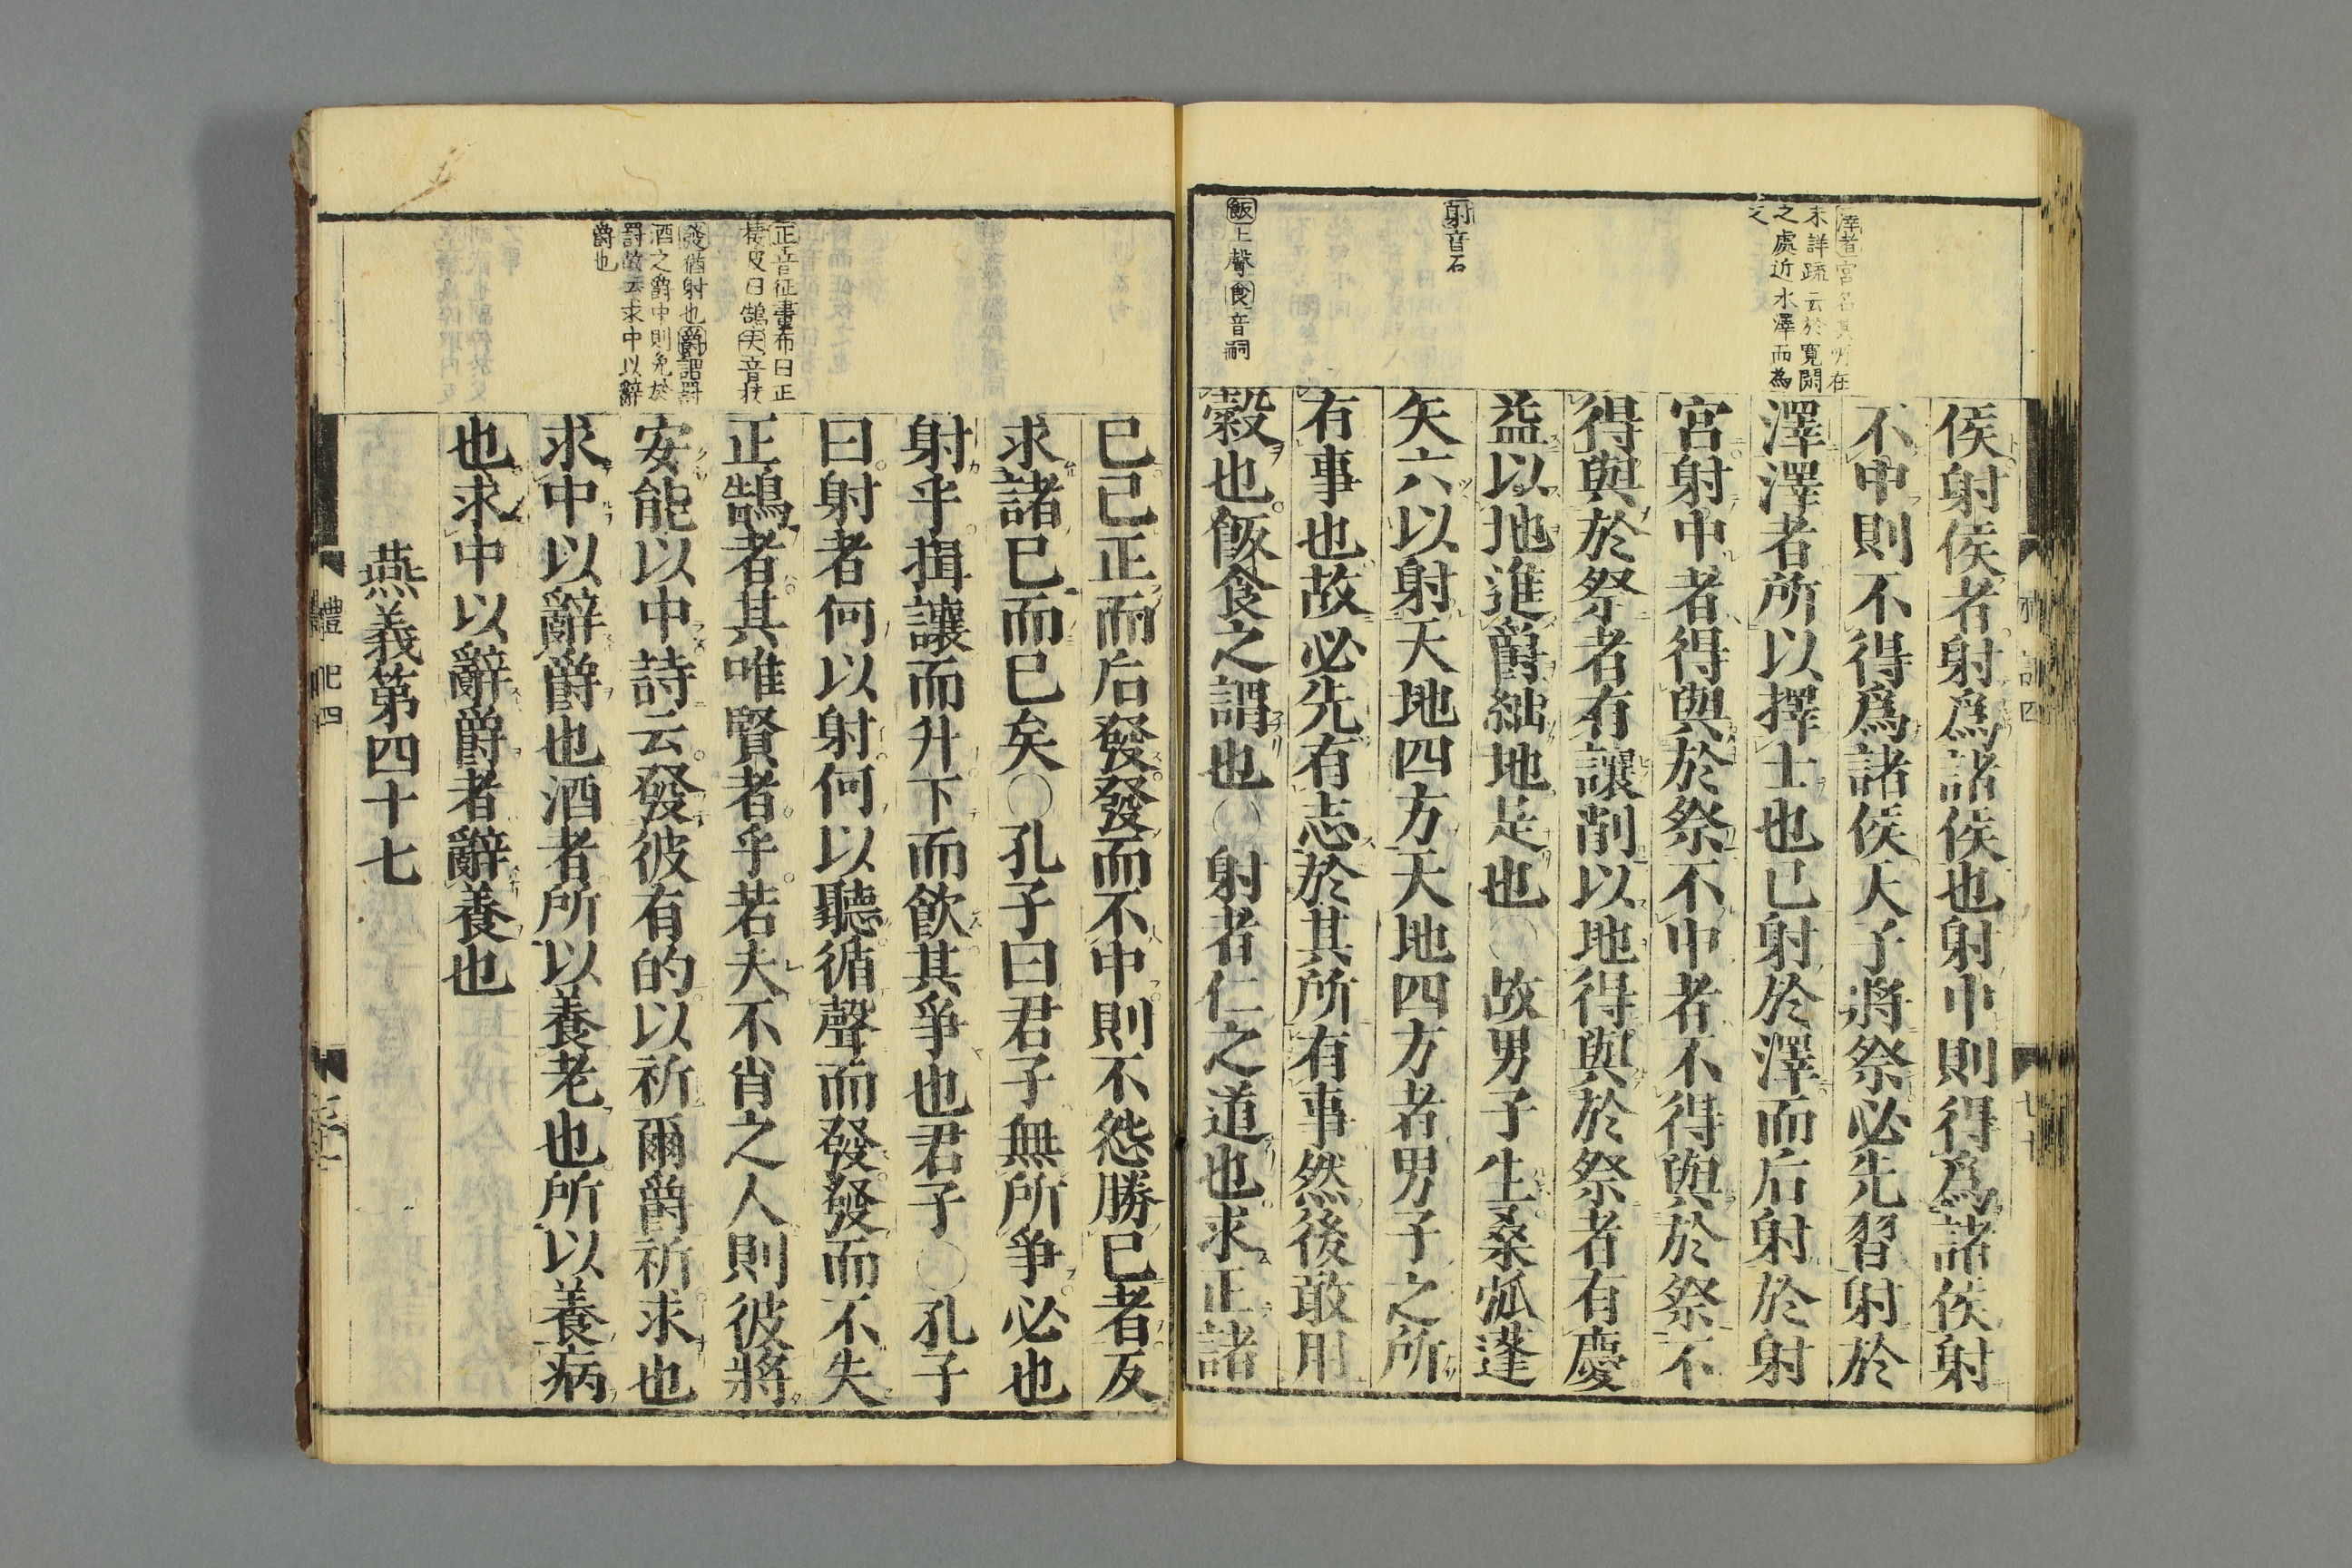 澤者宮名其所在
未詳疏云於寬閒
之處近水澤而為
之
射音石
飯上聲食音嗣
侯射侯者射爲諸侯也射中則得爲諸侯射
不中則不得爲諸侯天子將祭必先習射於
澤澤者所以擇士也已射於澤而后射於射
宮射中者得與於祭不中者不得與於祭不
得與於祭者有讓削以地得與於祭者有慶
益以地進爵絀地是也○故男子生桑弧蓬
矢六以射天地四方天地四方者男子之所
有事也故必先有志於其所有事然後敢用
穀也飯食之謂也○射者仁之道也求正諸
正音征畫布曰正
棲皮曰鵠夫音扶
發猶射也爵謂罰
酒之爵中則免於
罰故云求中以辭
爵也
已己正而后發發而不中則不怨勝已者反
求諸已而已矣○孔子曰君子無所爭必也
射乎揖讓而升下而飲其爭也君子○孔子
曰射者何以射何以聽循聲而發發而不失
正鵠者其唯賢者乎若夫不肖之人則彼將
安能以中詩云發彼有的以祈爾爵祈求也
求中以辭爵也酒者所以養老也所以養病
也求中以辭爵者辭養也
燕義第四十七
禮記四